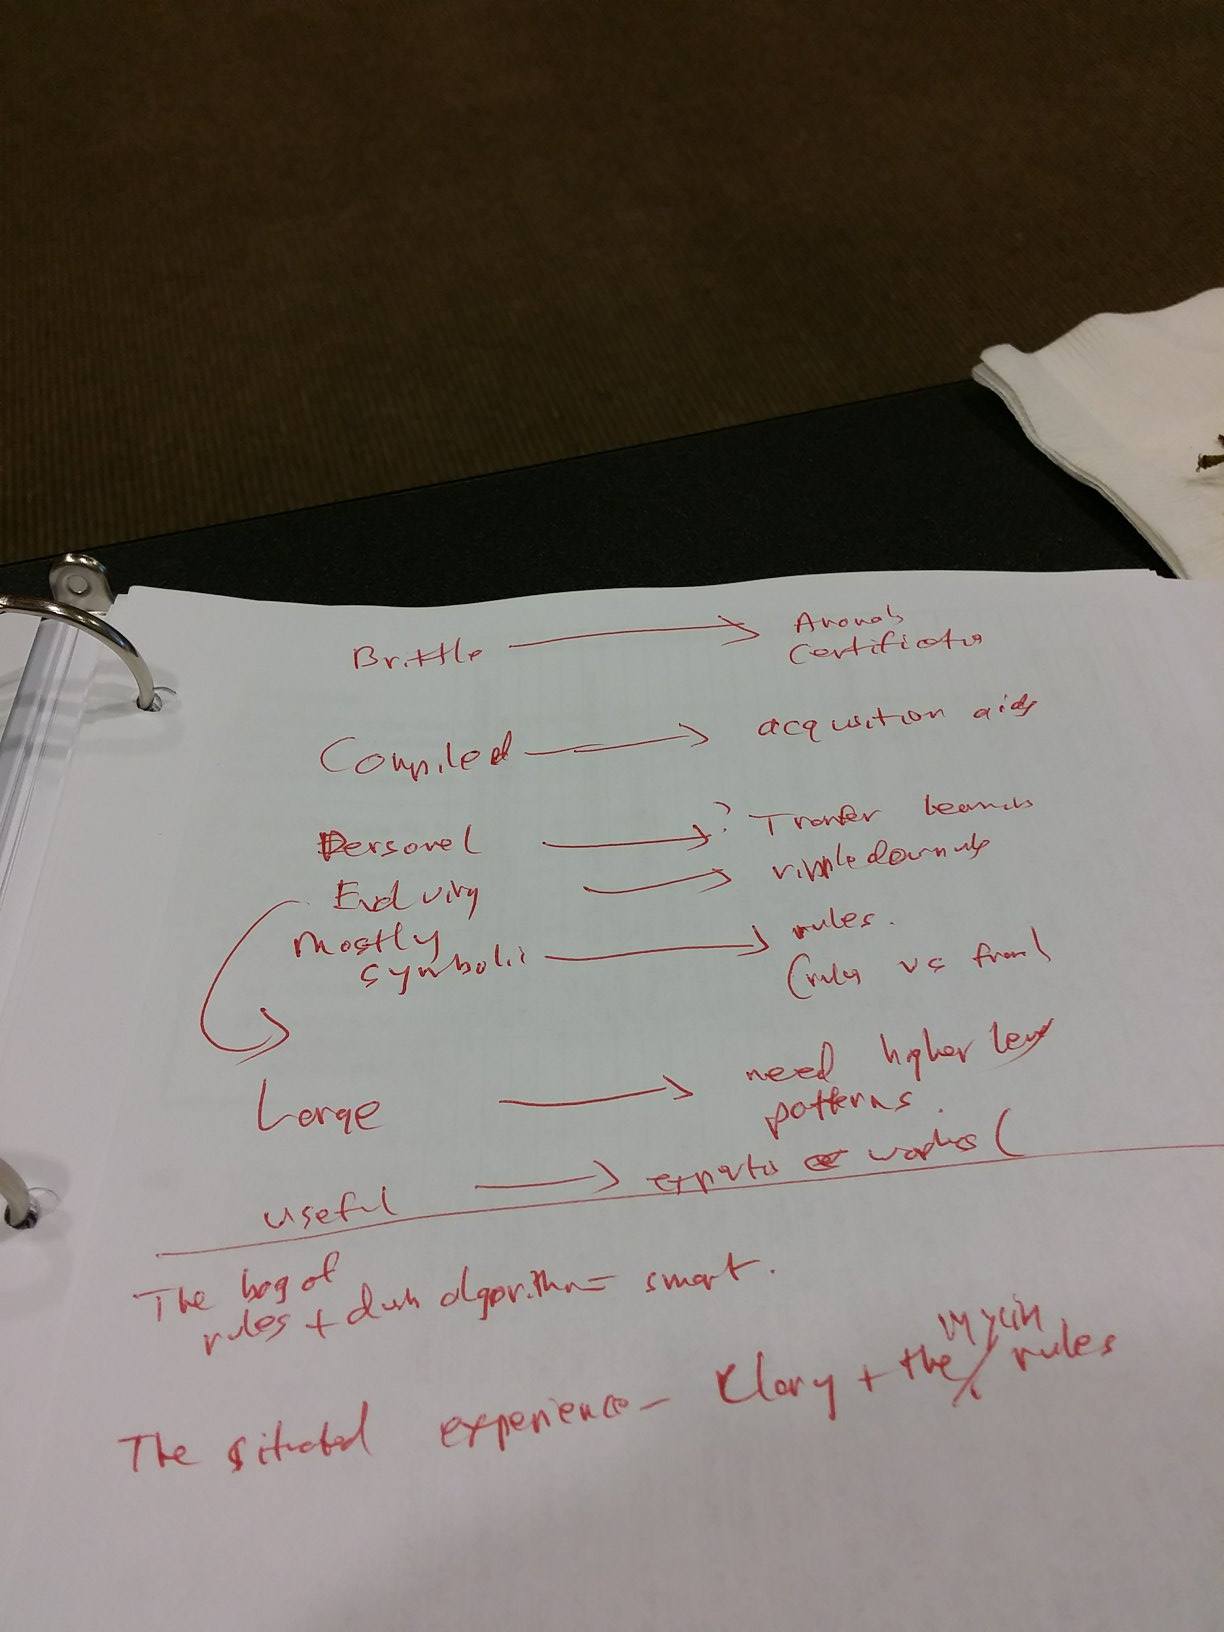 Brittle → Anomaly
Certification
Compiled → acqusition aids
Personel → ? Transfer learning
Evolving → ripple down rules
Mostly
symbolic → rules.
(rules vs frames)
Large → need higher level
patterns.
useful → expertise workes (
The bag of
rules + dum algorithm = smart.
The situated experience - Clancy + the Mycin rules